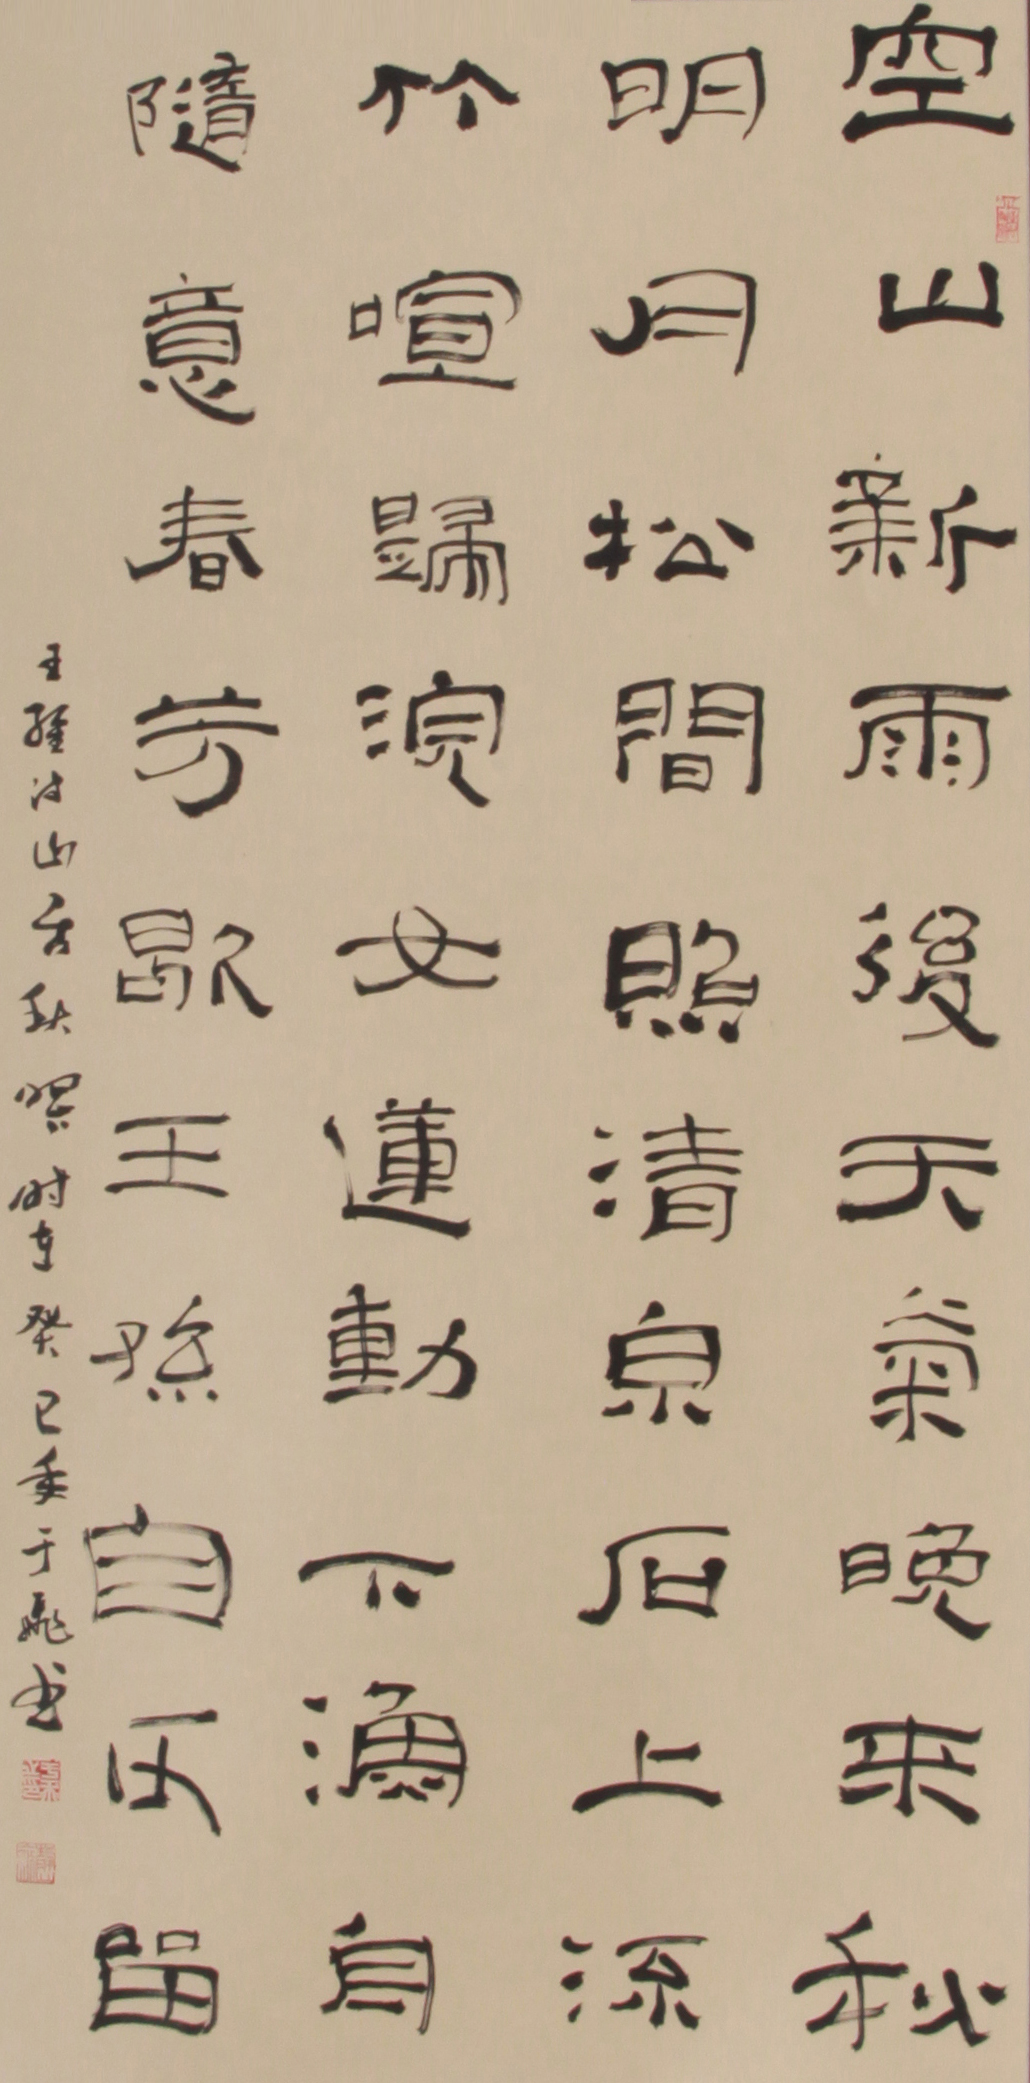 空山新雨後天氣晚来秋
明月松間照清泉石上流
竹喧歸浣女蓮動下漁舟
隨意春芳歇王孫自可留
王維诗山居秋暝时在癸巳秊于飛书